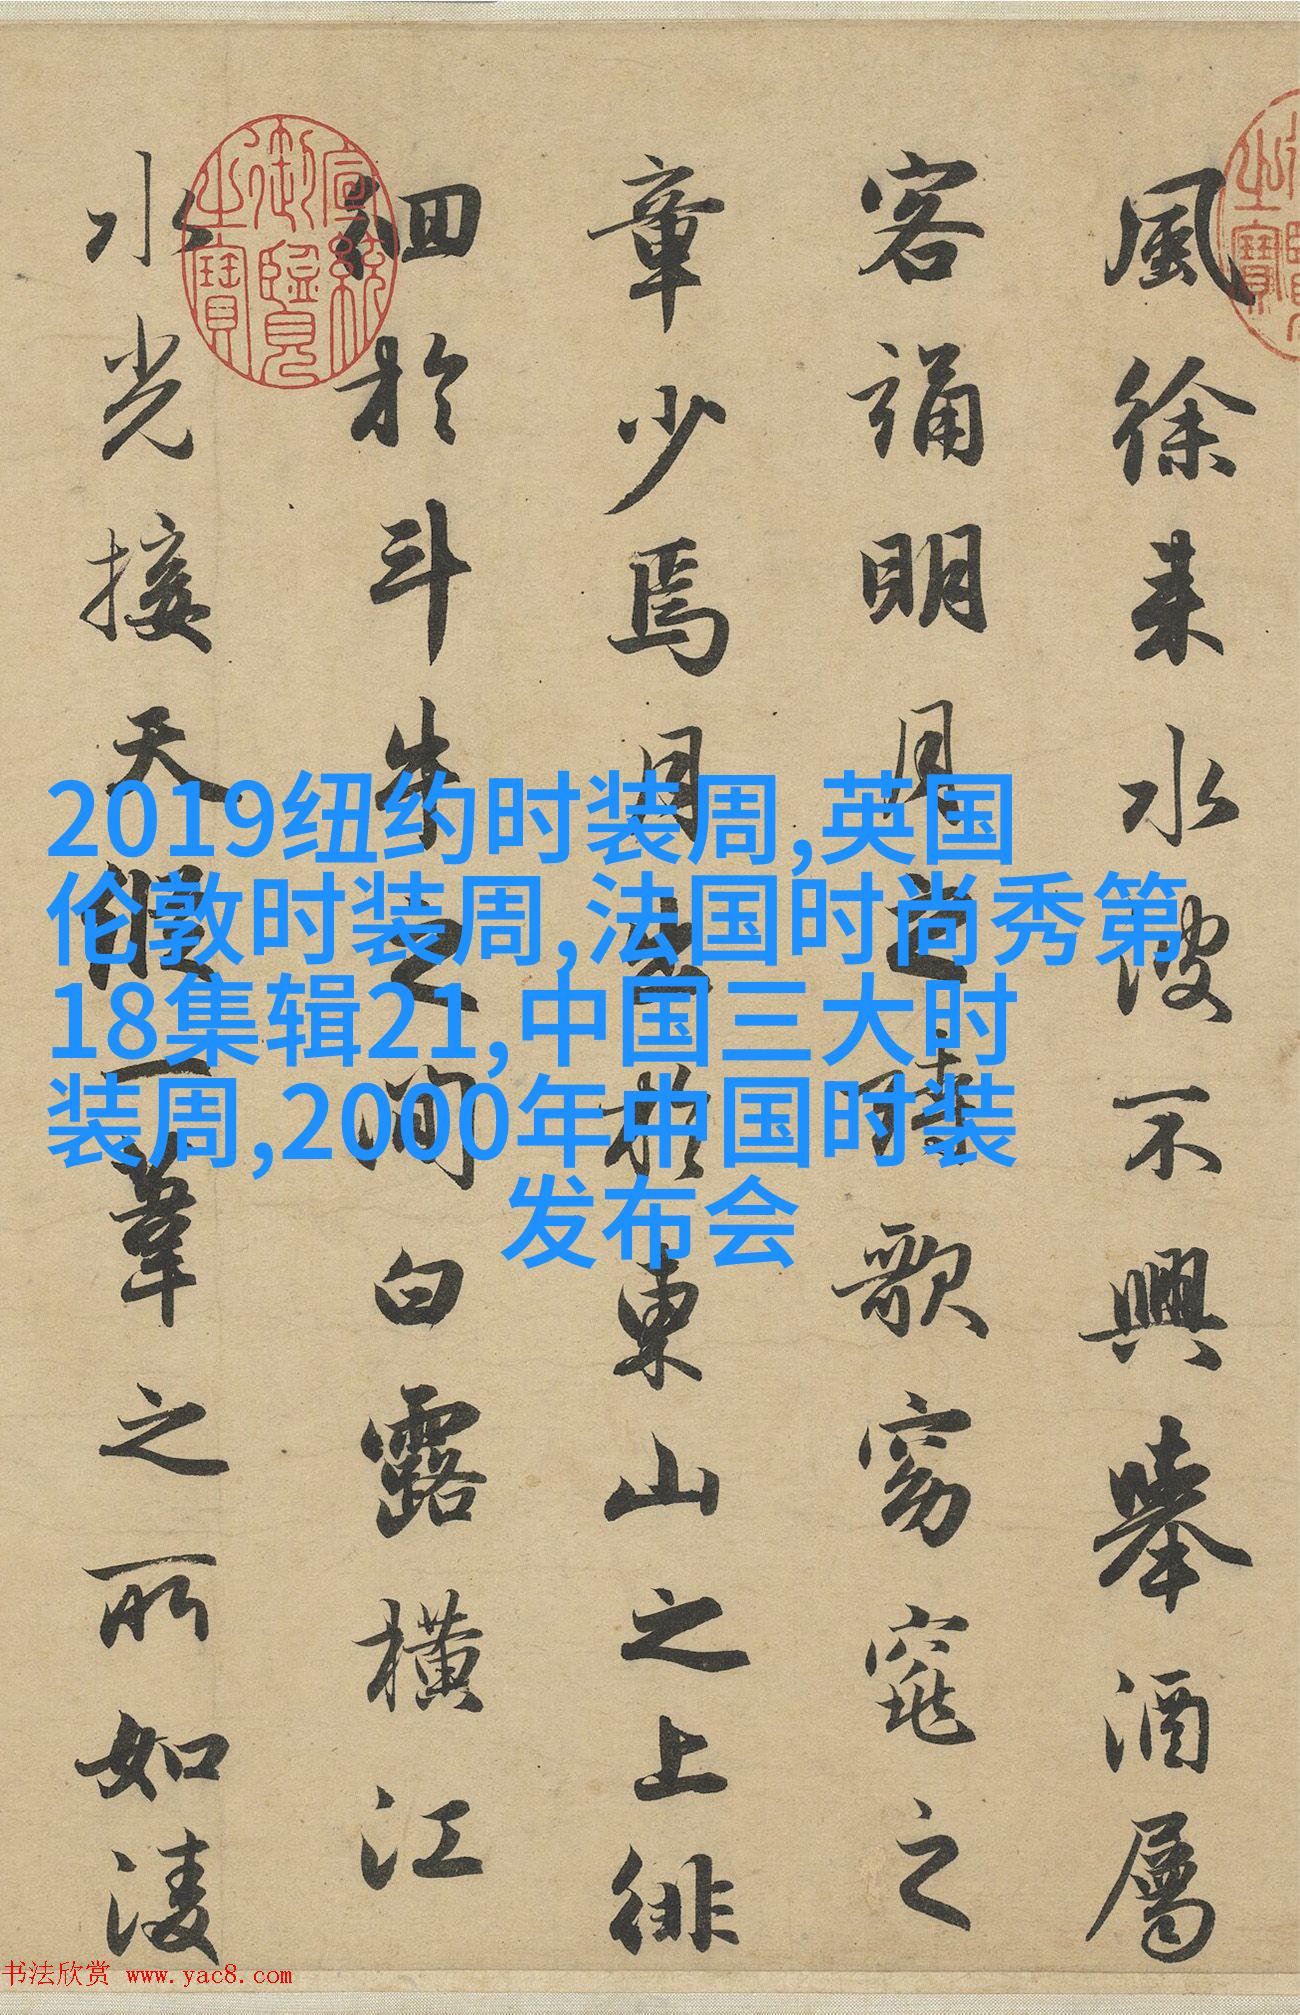 風徐来水波不興舉酒屬
客誦明月之詩歌窈窕之
章少焉月出於東山之上徘
徊於斗牛之間白露橫江
水光接天縱一葦之所如凌
宣統御覽之寶
2019纽约时装周,英国
伦敦时装周,法国时尚秀第
18集辑21,中国三大时
装周,2000年中国时装
发布会
书法欣赏 www.yac8.com